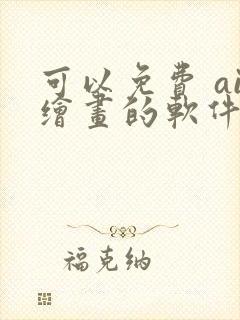 可以免費 ai
繪畫的軟件
福克納